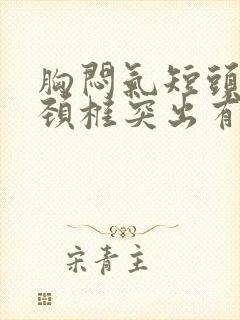 胸悶氣短頭
頚椎突出有
宋青主